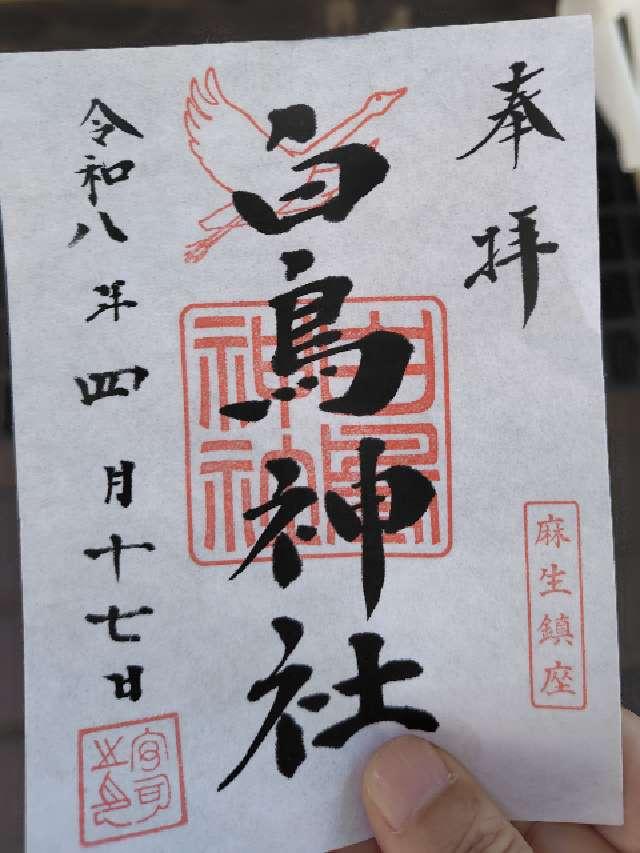 奉拝
麻生鎮座
白鳥神社
白鳥神社
令和八年四月十七日
宮司之印